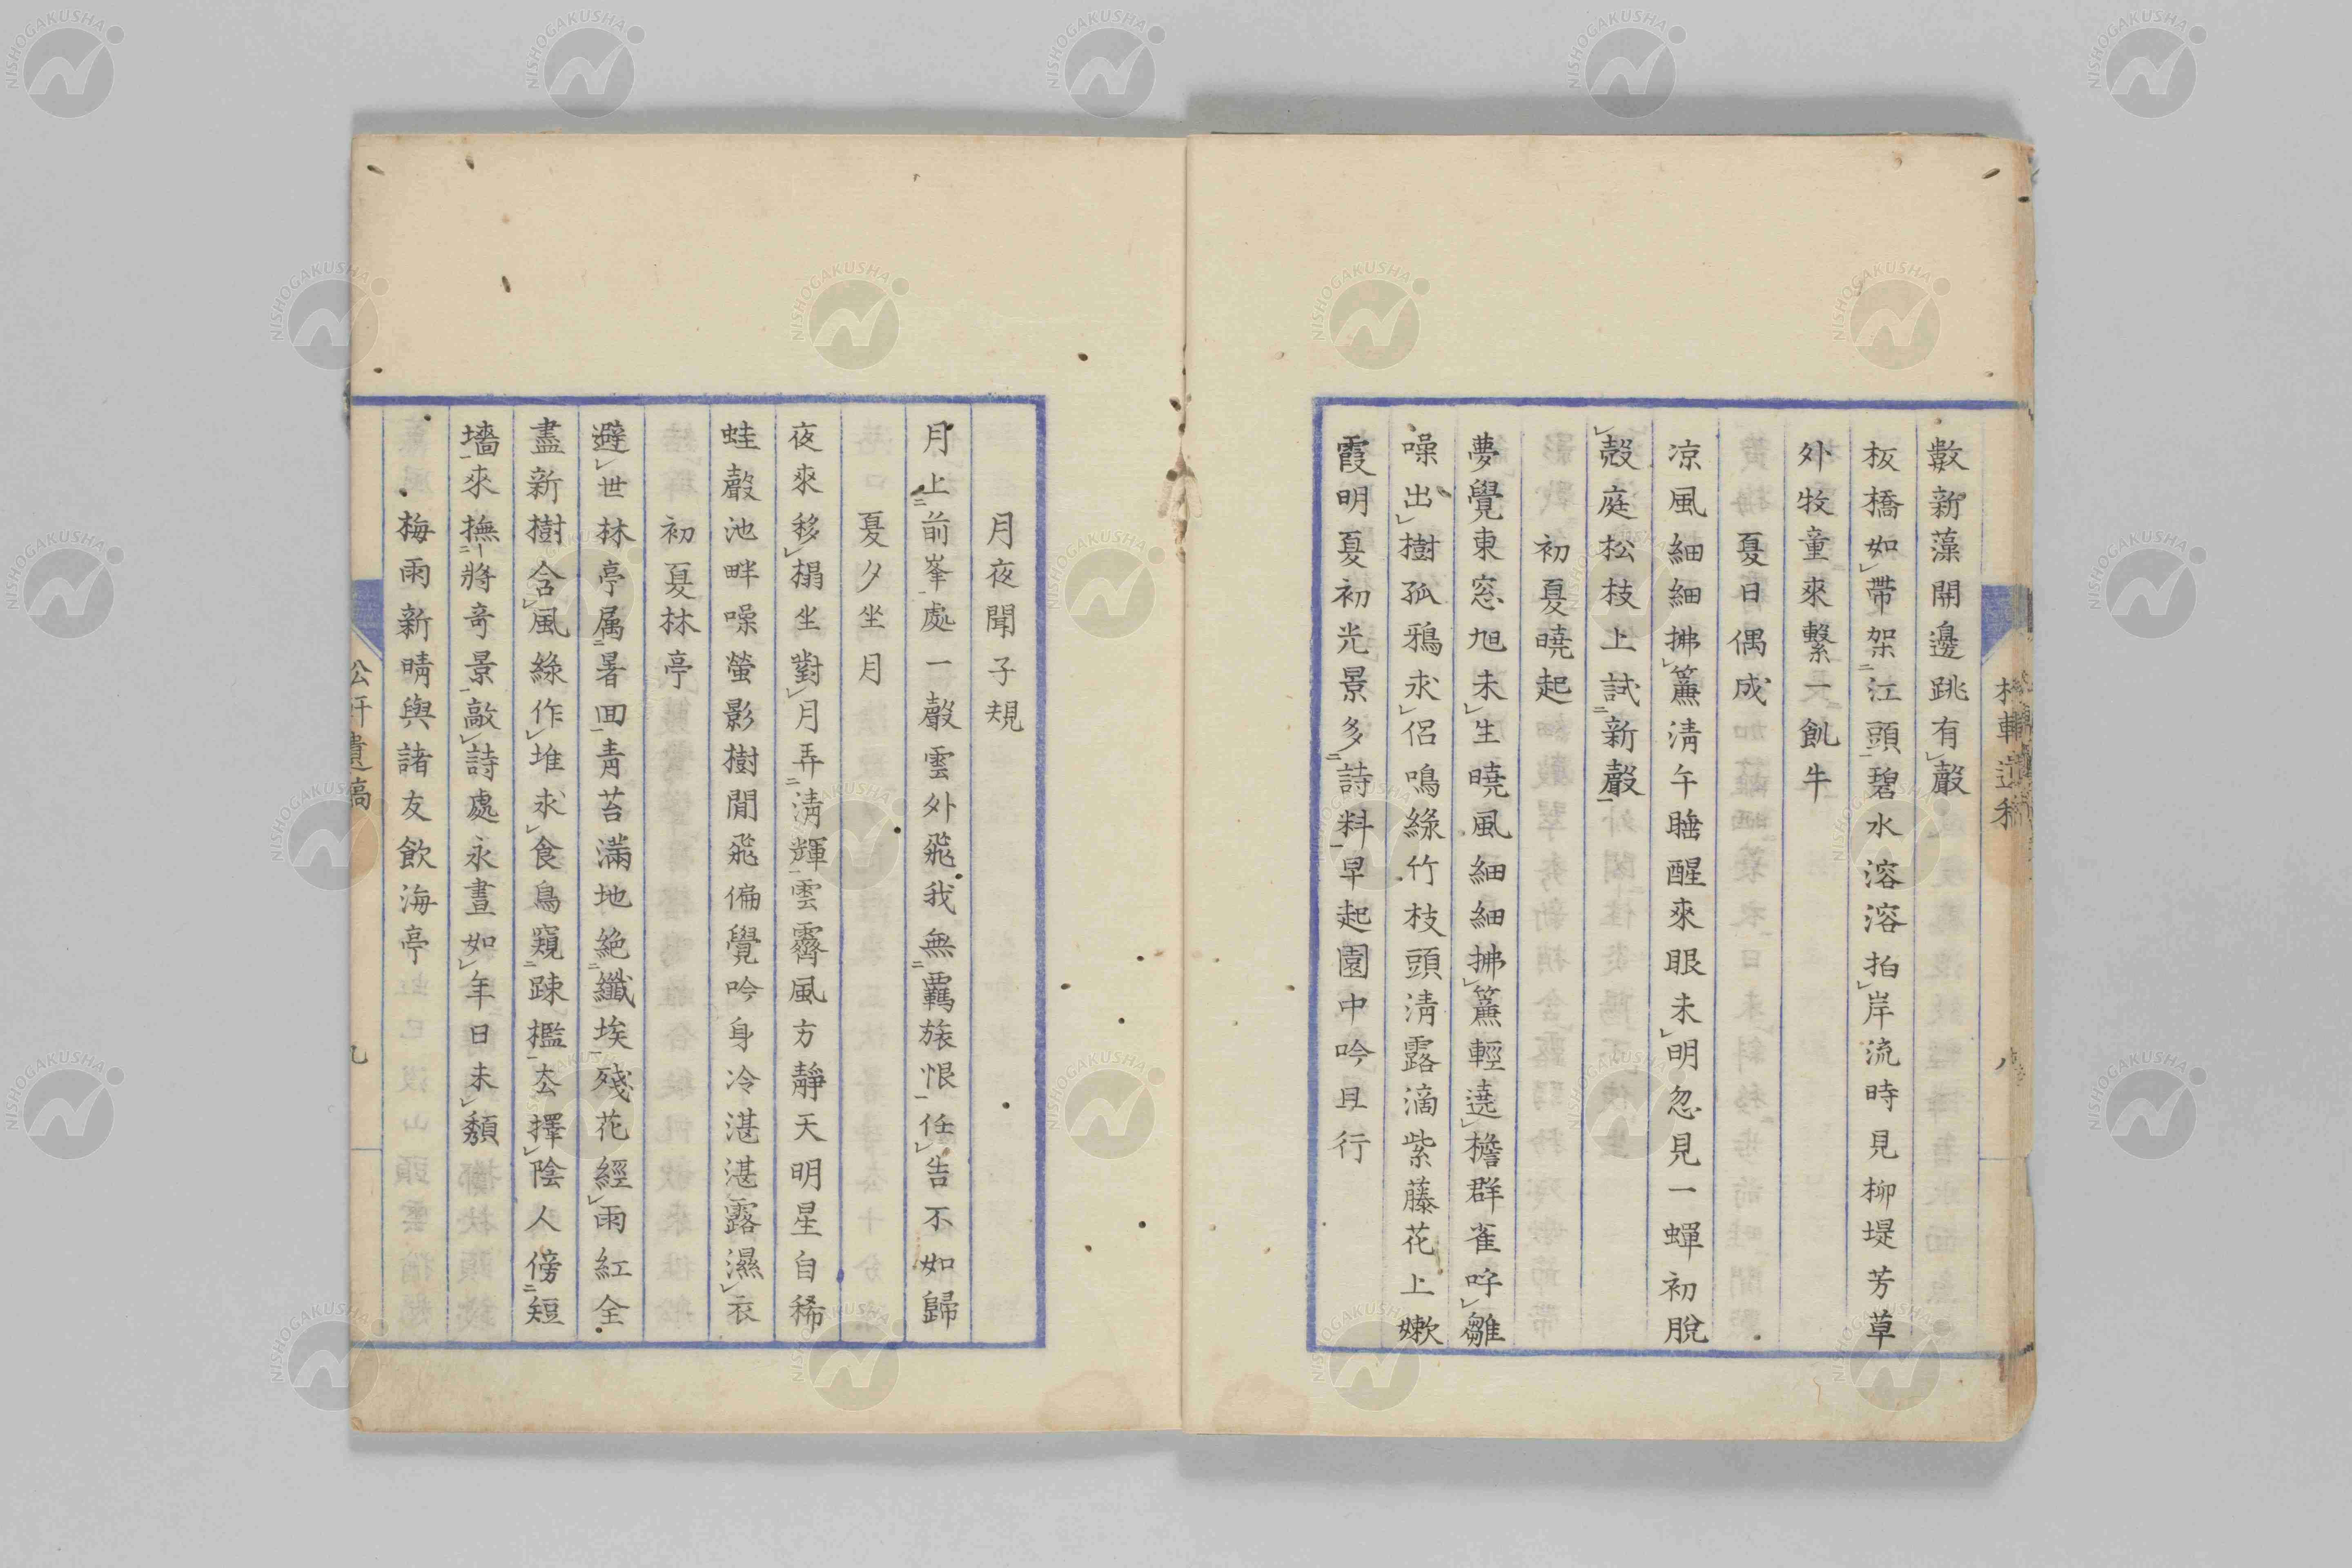 數新藻開邊跳有聲
板橋如帶架江頭碧水溶溶拍岸流時見柳堤芳草
外牧童來繫一飢牛
夏日偶成
凉風細細拂簾清午睡醒來眼未明忽見一蟬初脫
殼庭松枝上試新聲
初夏曉起
夢覺東窓旭未生曉風細細拂簾輕遶檐群雀呼雛
噪出樹孤鴉求侶鳴綠竹枝頭清露滴紫藤花上嫩
霞明夏初光景多詩料早起園中吟且行
月夜聞子規
月上前峯處一聲雲外飛我無羈旅恨任告不如歸
夏夕坐月
夜來移榻坐對月弄清輝雲霽風方靜天明星自稀
蛙聲池畔噪螢影樹間飛偏覺吟身冷湛湛露濕衣
初夏林亭
避世林亭属暑回青苔滿地絶纖埃殘花經雨紅全
盡新樹含風綠作堆求食鳥窺踈檻去擇陰人傍短
墻來撫將奇景敵詩處永晝如年日未頹
梅雨新晴與諸友飲海亭
遺稿
九
NISHOGAKUSHA